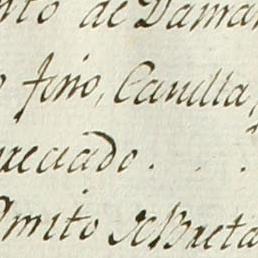 nto de Dama
fino, Canilla,
preciado . . .
mito de Breta